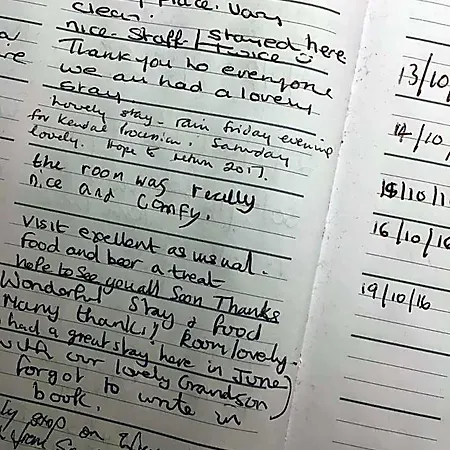 place. Very
clean.
nice staff / stayed here
twice
Thank you to everyone
we all had a lovely
stay
Lovely stay - rain friday evening
for Kendal Procession. Saturday
lovely. Hope to return 2017.
the room was really
nice and comfy.
Visit excellent as usual.
food and beer a treat
hope to see you all soon Thanks
Wonderful stay & food
Many thanks, Room lovely.
had a great stay here in June
with our lovely Grandson)
forgot to write in
book.
stop on
from
13/10/
14/10/
15/10/1
16/10/16
19/10/16